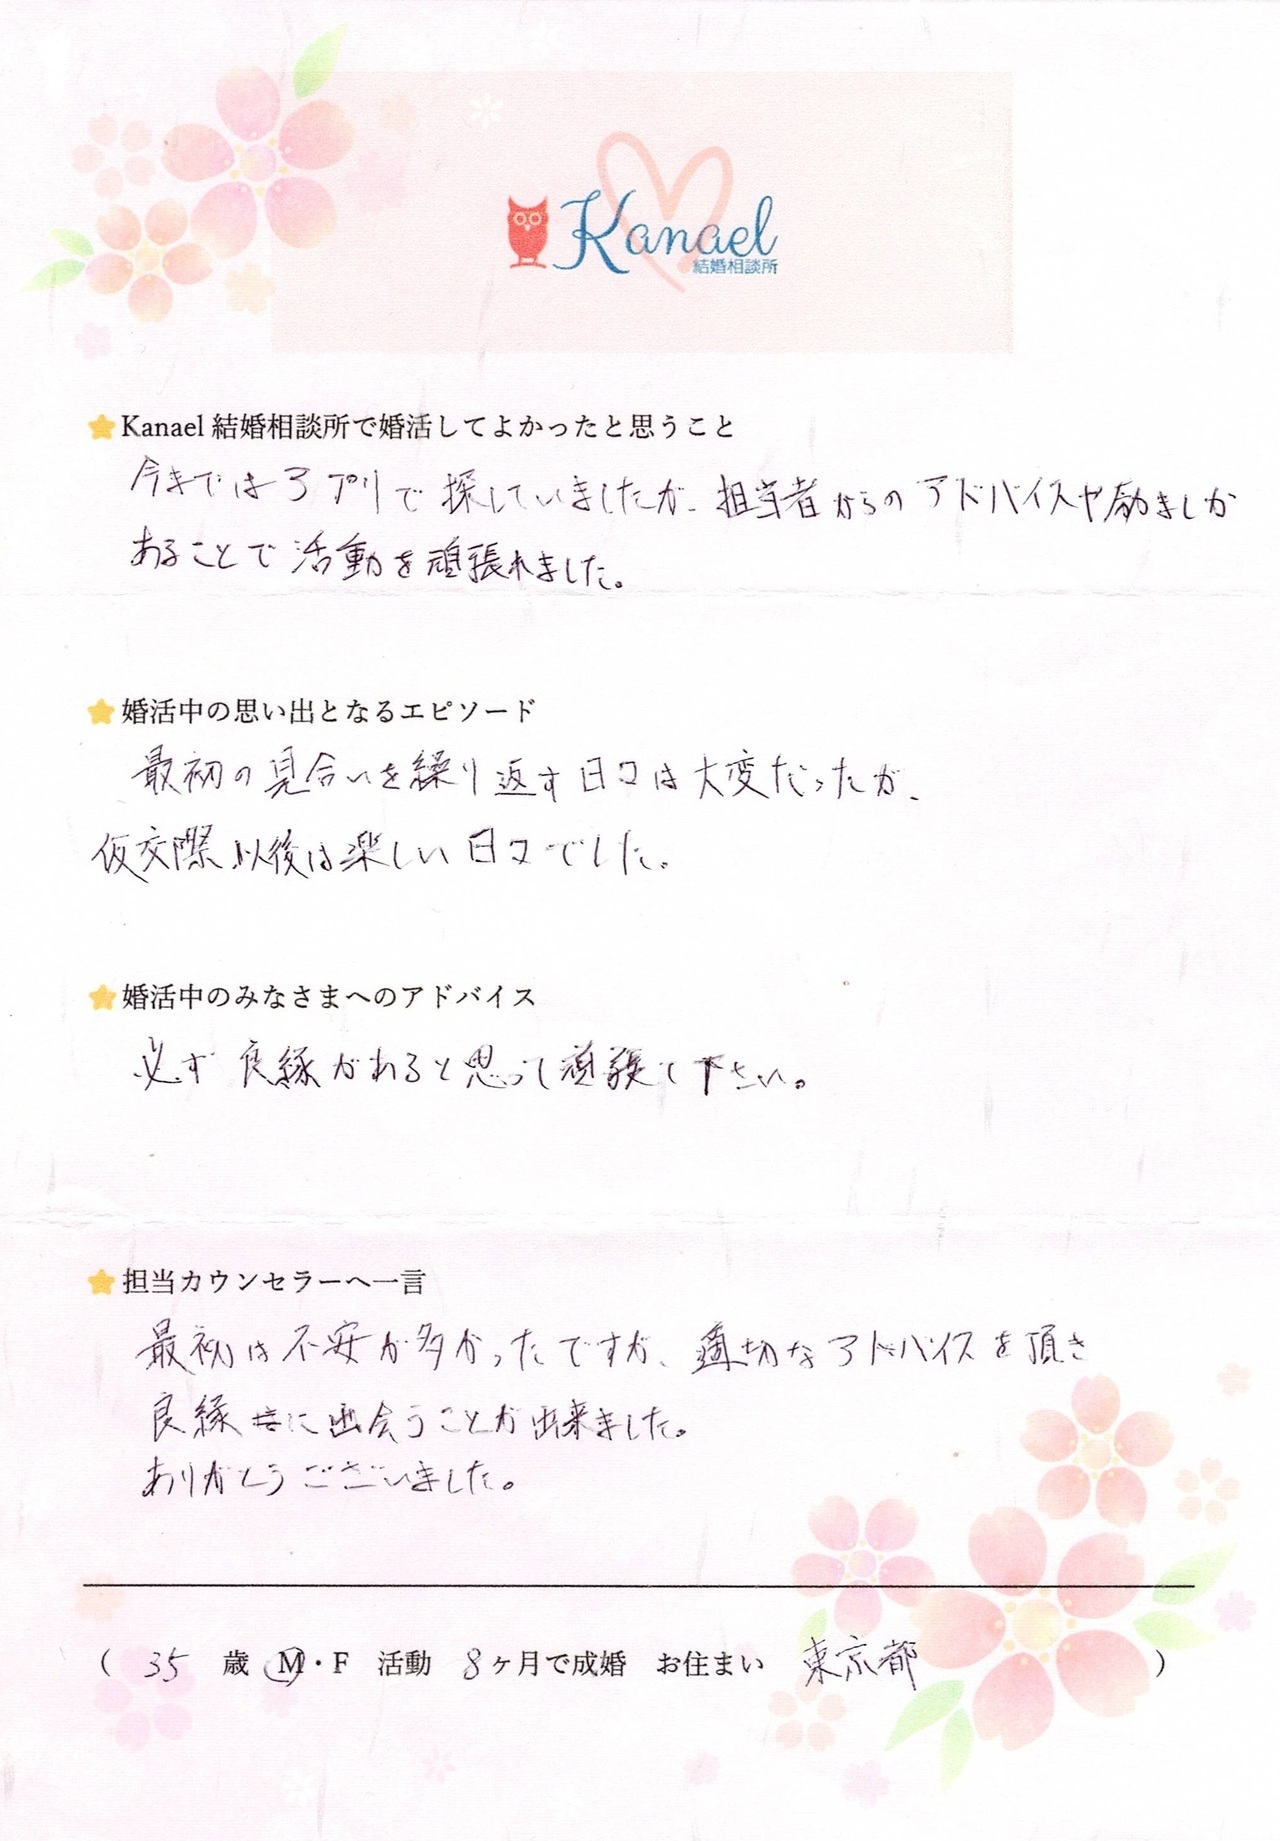 Kanael
結婚相談所
Kanael 結婚相談所で婚活してよかったと思うこと
今まではアプリで探していましたが、担当者からのアドバイスや励ましが
あることで活動を頑張れました。
婚活中の思い出となるエピソード
最初の見合いを繰り返す日々は大変だったが、
仮交際以後は楽しい日々でした。
婚活中のみなさまへのアドバイス
必ず良縁があると思って頑張て下さい。
担当カウンセラーへ一言
最初は不安が多かったですが、適切なアドバイスを頂き
良縁に出会うことが出来ました。
ありがとうございました。
( 35 歳 M・F 活動 8ヶ月で成婚 お住まい 東京都 )